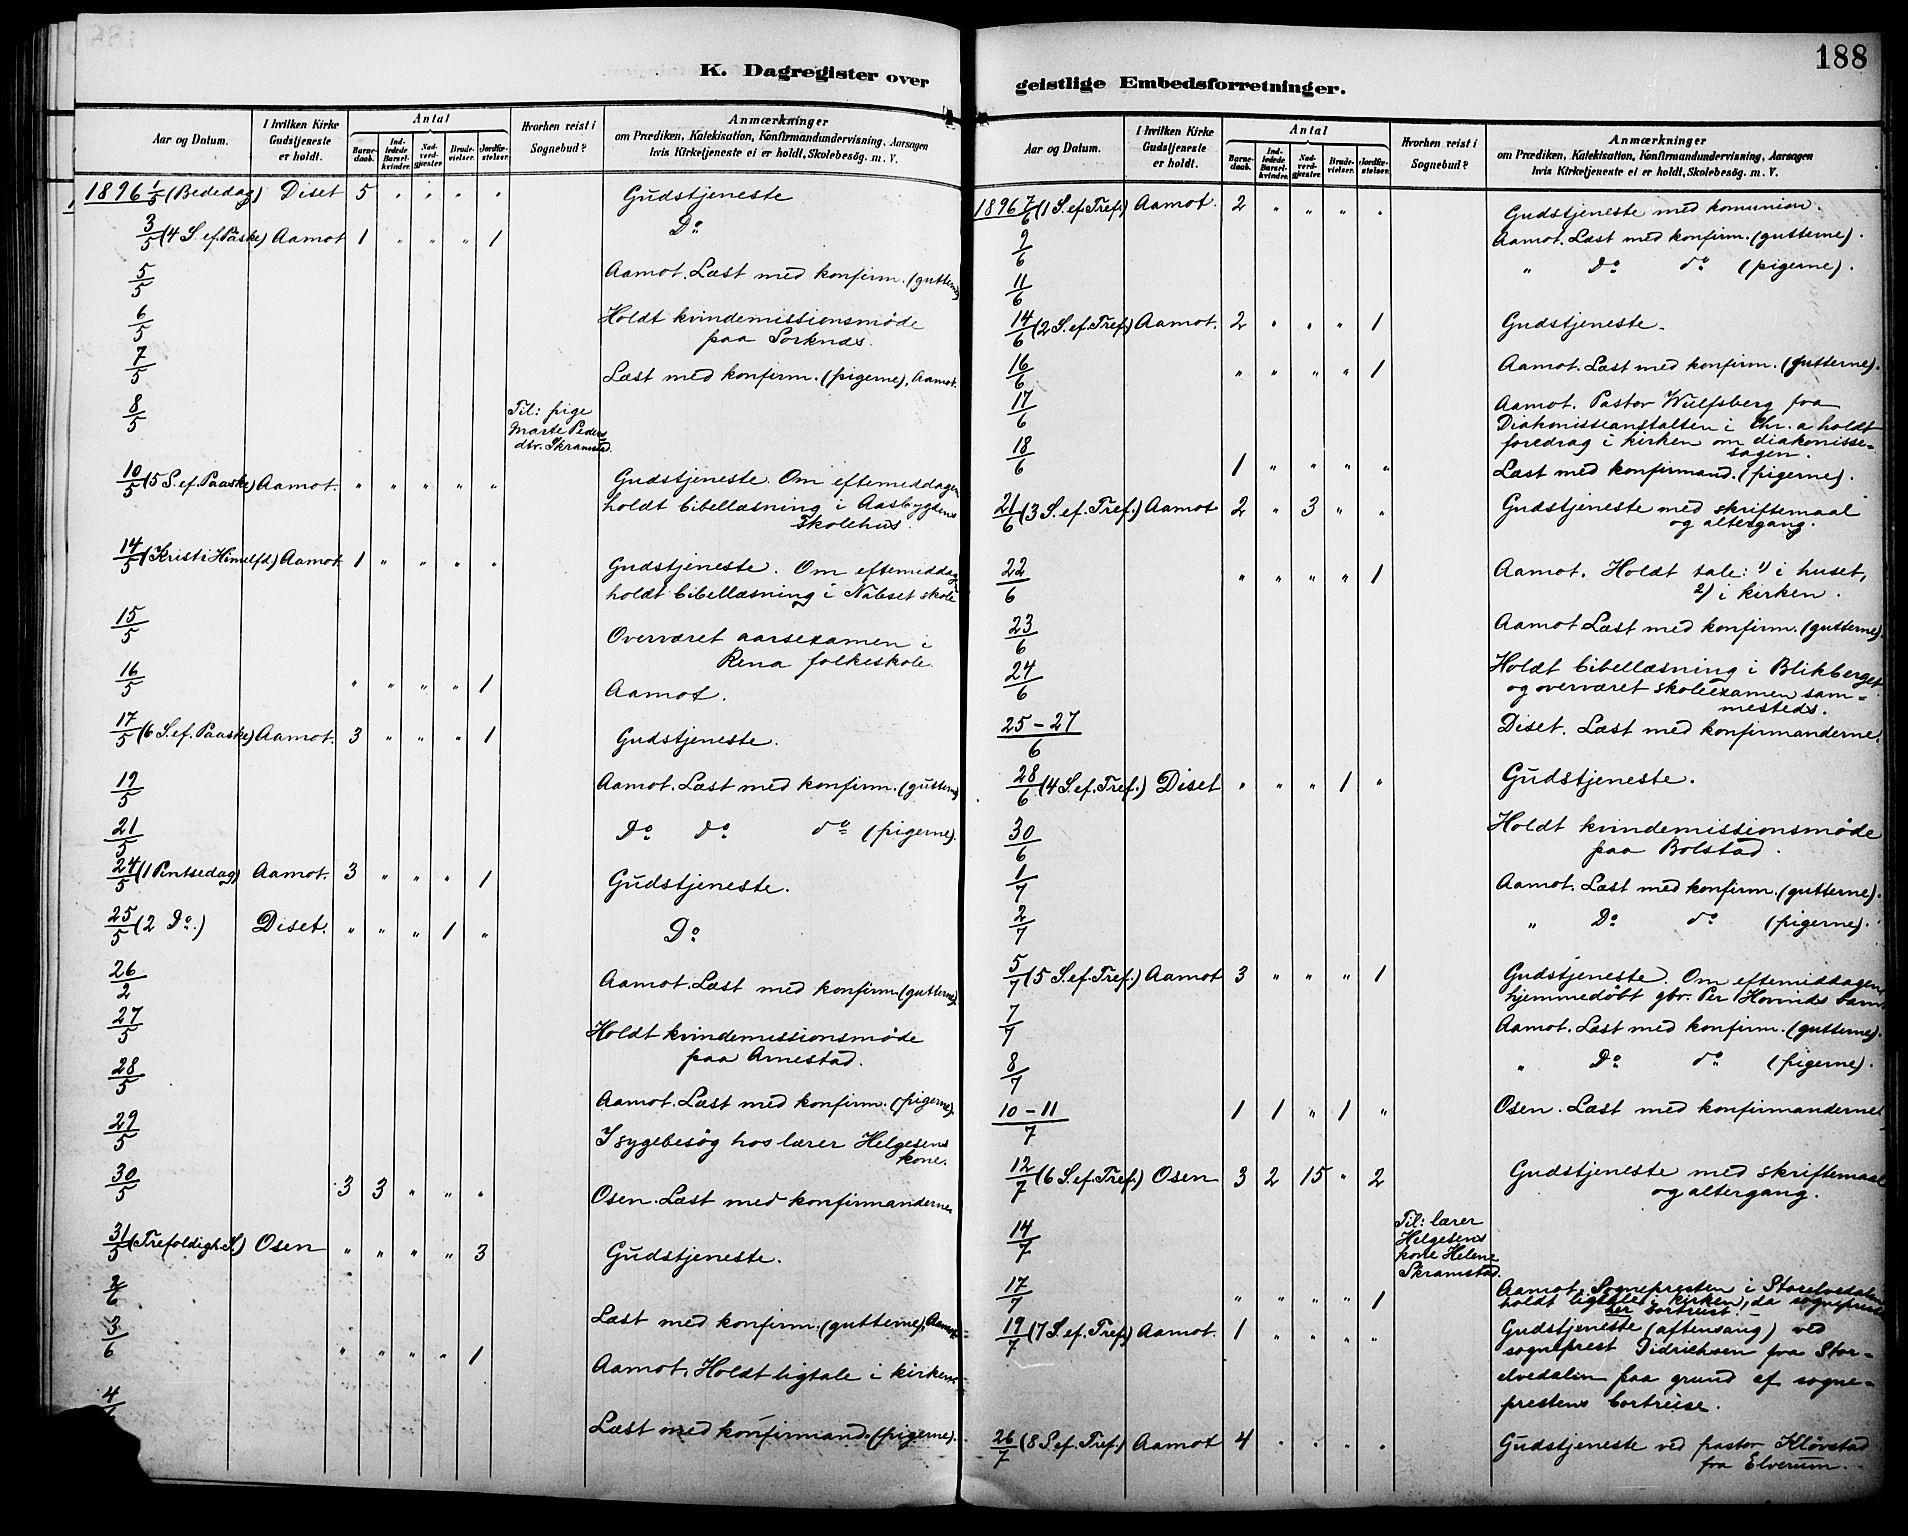 188
K. Dagregister over
geistlige Embedsforretninger.
Aar og Datum. I hvilken Kirke Gudstjeneste er holdt. Antal Barnedaab. Indledede Barselkvinder. Nadverdgjester. Brudevielser. Jordfæstelser. Hvorhen reist i Sognebud? Anmærkninger om Prædiken, Katekisation, Konfirmandundervisning, Aarsagen hvis Kirketjeneste ei er holdt, Skolebesög. m. V.
1896 1/5 (Bededag) Diset 5 " " " " Gudstjeneste
3/5 (4 S. ef. Paaske) Aamot 1 " " " 1 Do
5/5 Aamot. Læst med konfirm. (gutterne)
6/5 Holdt kvindemissionsmöde
paa Sorknæs.
7/5 Læst med konfirm. (pigerne), Aamot.
8/5 Til: pige
Marte Peders
dtr. Skramstad.
10/5 (5 S. ef. Paaske) Aamot. " " " " " Gudstjeneste. Om eftemiddagen
holdt bibellæsning i Aasbygdens
skolehus.
14/5 (Kristi Himelfd) Aamot 1 " " " " Gudstjeneste. Om eftemiddag
holdt bibellæsning i Næbset skole
15/5 Overværet aarsexamen i
Rena folkeskole.
16/5 " " " " 1 Aamot.
17/5 (6 S. ef. Paaske) Aamot. 3 " " " 1 Gudstjeneste.
19/5 Aamot. Læst med konfirm. (gutterne)
21/5 Do do do (pigerne).
24/5 (1 Pintsedag) Aamot. 3 " " " 1 Gudstjeneste.
25/5 (2 Do.) Diset. " " " 1 " Do
26/2 Aamot. Læst med konfirm (gutterne).
27/5 Holdt kvindemissionsmöde
paa Arnestad.
28/5 Aamot. Læst med konfirm. (pigerne).
29/5 I sygebesög hos lærer Helgesens
kone.
30/5 3 3 " " " Osen. Læst med konfirmanderne.
31/5 (Trefoldigh. S.) Osen " " " " 3 Gudstjeneste.
2/6 Læst med konfirm. (gutterne), Aamot.
3/6 " " " " 1 Aamot. Holdt ligtale i kirken
4/6 Læst med konfirmand. (pigerne).
Aar og Datum. I hvilken Kirke Gudstjeneste er holdt. Antal Barnedaab. Indledede Barselkvinder. Nadverdgjester. Brudevielser. Jordfæstelser. Hvorhen reist i Sognebud? Anmærkninger om Prædiken, Katekisation, Konfirmandundervisning, Aarsagen hvis Kirketjeneste ei er holdt, Skolebesög. m. V.
1896 7/6 (1 S. ef. Tref.) Aamot. 2 " " " " Gudstjeneste med komunion.
9/6 Aamot. Læst med konfirm. (gutterne).
11/6 " Do do (pigerne).
14/6 (2 S. ef. Tref.) Aamot. 2 " " " 1 Gudstjeneste.
16/6 " " " " 1 Aamot. Læst med konfirm. (gutterne).
17/6 Aamot. Pastor Wulfsberg fra
Diakonisseanstalten i Chr.a holdt
foredrag i kirken om diakonisse-
sagen.
18/6 1 " " " " Læst med konfirmand. (pigerne).
21/6 (3 S. ef. Tref.) Aamot 2 " 3 " " Gudstjeneste med skriftemaal
og altergang.
22/6 " " " " 1 Aamot. Holdt tale: 1) i huset,
2) i kirken.
23/6 Aamot Læst med konfirm. (gutterne).
24/6 Holdt bibellæsning i Blikberget
og overværet skoleexamen sam-
mesteds.
25-27/6 Diset. Læst med konfirmanderne.
28/6 (4 S. ef. Tref.) Diset " " " 1 " Gudstjeneste.
30/6 Holdt kvindemissionsmöde
paa Bolstad.
1/7 Aamot. Læst med konfirm. (gutterne).
2/7 " Do do (pigerne).
5/7 (5 S. ef. Tref.) Aamot 3 " " " 1 Gudstjeneste. Om eftemiddagen
hjemmedöbt gbr. Per Hovinds barn
7/7 Aamot. Læst med konfirm. (gutterne).
8/7 " Do do (pigerne).
10-11/7 1 1 " 1 " Osen. Læst med konfirmanderne
12/7 (6 S. ef. Tref.) Osen 3 2 15 " 2 Gudstjeneste med skriftemaal
og altergang.
14/7 Til: lærer
Helgesens
kone Helene
Skramstad.
17/7 " " " " 1 Aamot. Sognepresten i Storelvedalen
holdt ligtale i kirken, da sognepresten
er bortreist
19/7 (7 S. ef. Tref.) Aamot. 1 " " " " Gudstjeneste (aftensang) ved
sogneprest Didrichsen fra Stor-
elvedalen paa grund af sogne-
prestens bortreise.
26/7 (8 S. ef. Tref.) Aamot 4 " " " " Gudstjeneste ved pastor Klövstad
fra Elverum.